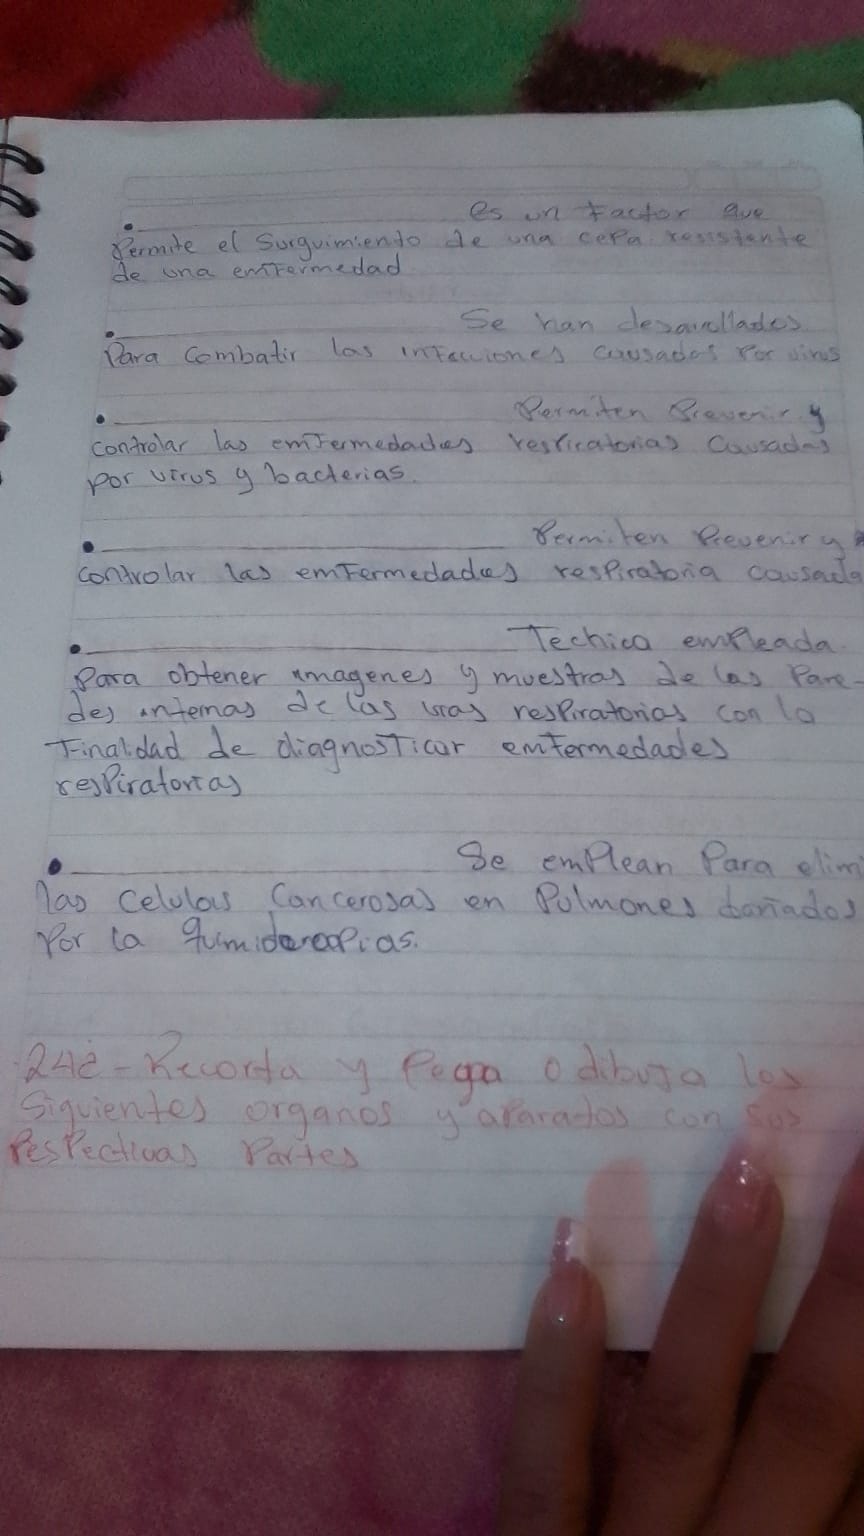 • ____________ es un factor que
Permite el Surguimiento de una cepa resistente
de una enfermedad
• ____________ Se han desarollados
Para Combatir las infecciones causados Por virus
• ____________ Permiten Prevenir y
controlar las emfermedades respiratorias Causadas
por virus y bacterias.
• ____________ Permiten Prevenir y
controlar las emfermedades respiratoria causada
• ____________ Techica empleada
Para obtener imagenes y muestras de las Pare-
des internas de las vias respiratorias con la
Finalidad de diagnosticar emfermedades
respiratorias
• ____________ Se emplean Para elim
las celulas Cancerosas en Pulmones dañados
Por la
24é- Recorta y Pega o dibuja los
Siguientes organos y aparatos con sus
Respectivas Partes